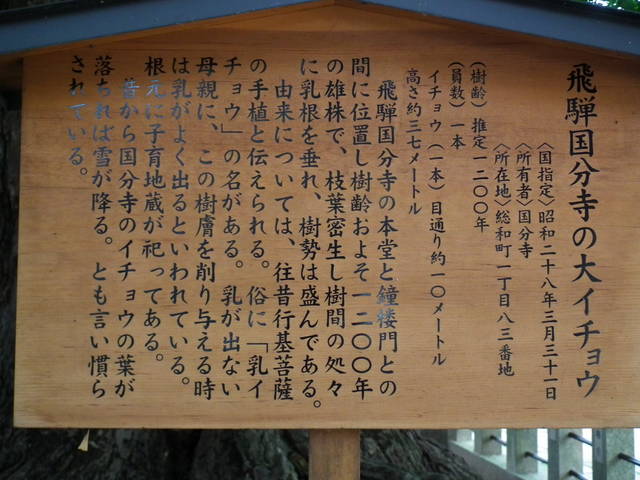 飛騨国分寺の大イチョウ
〈国指定〉昭和二十八年三月三十一日
〈所有者〉国分寺
〈所在地〉総和町一丁目八三番地
（樹齢）推定一二〇〇年
（員数）一本
イチョウ（一本）目通り約一〇メートル
高さ約三七メートル
飛騨国分寺の本堂と鐘楼門との
間に位置し樹齢およそ一二〇〇年
の雄株で、枝葉密生し樹間の処々
に乳根を垂れ、樹勢は盛んである。
由来については、往昔行基菩薩
の手植と伝えられる。俗に「乳イ
チョウ」の名がある。乳が出ない
母親に、この樹膚を削り与える時
は乳がよく出るといわれている。
根元に子育地蔵が祀ってある。
昔から国分寺のイチョウの葉が
落ちれば雪が降る。とも言い慣ら
されている。